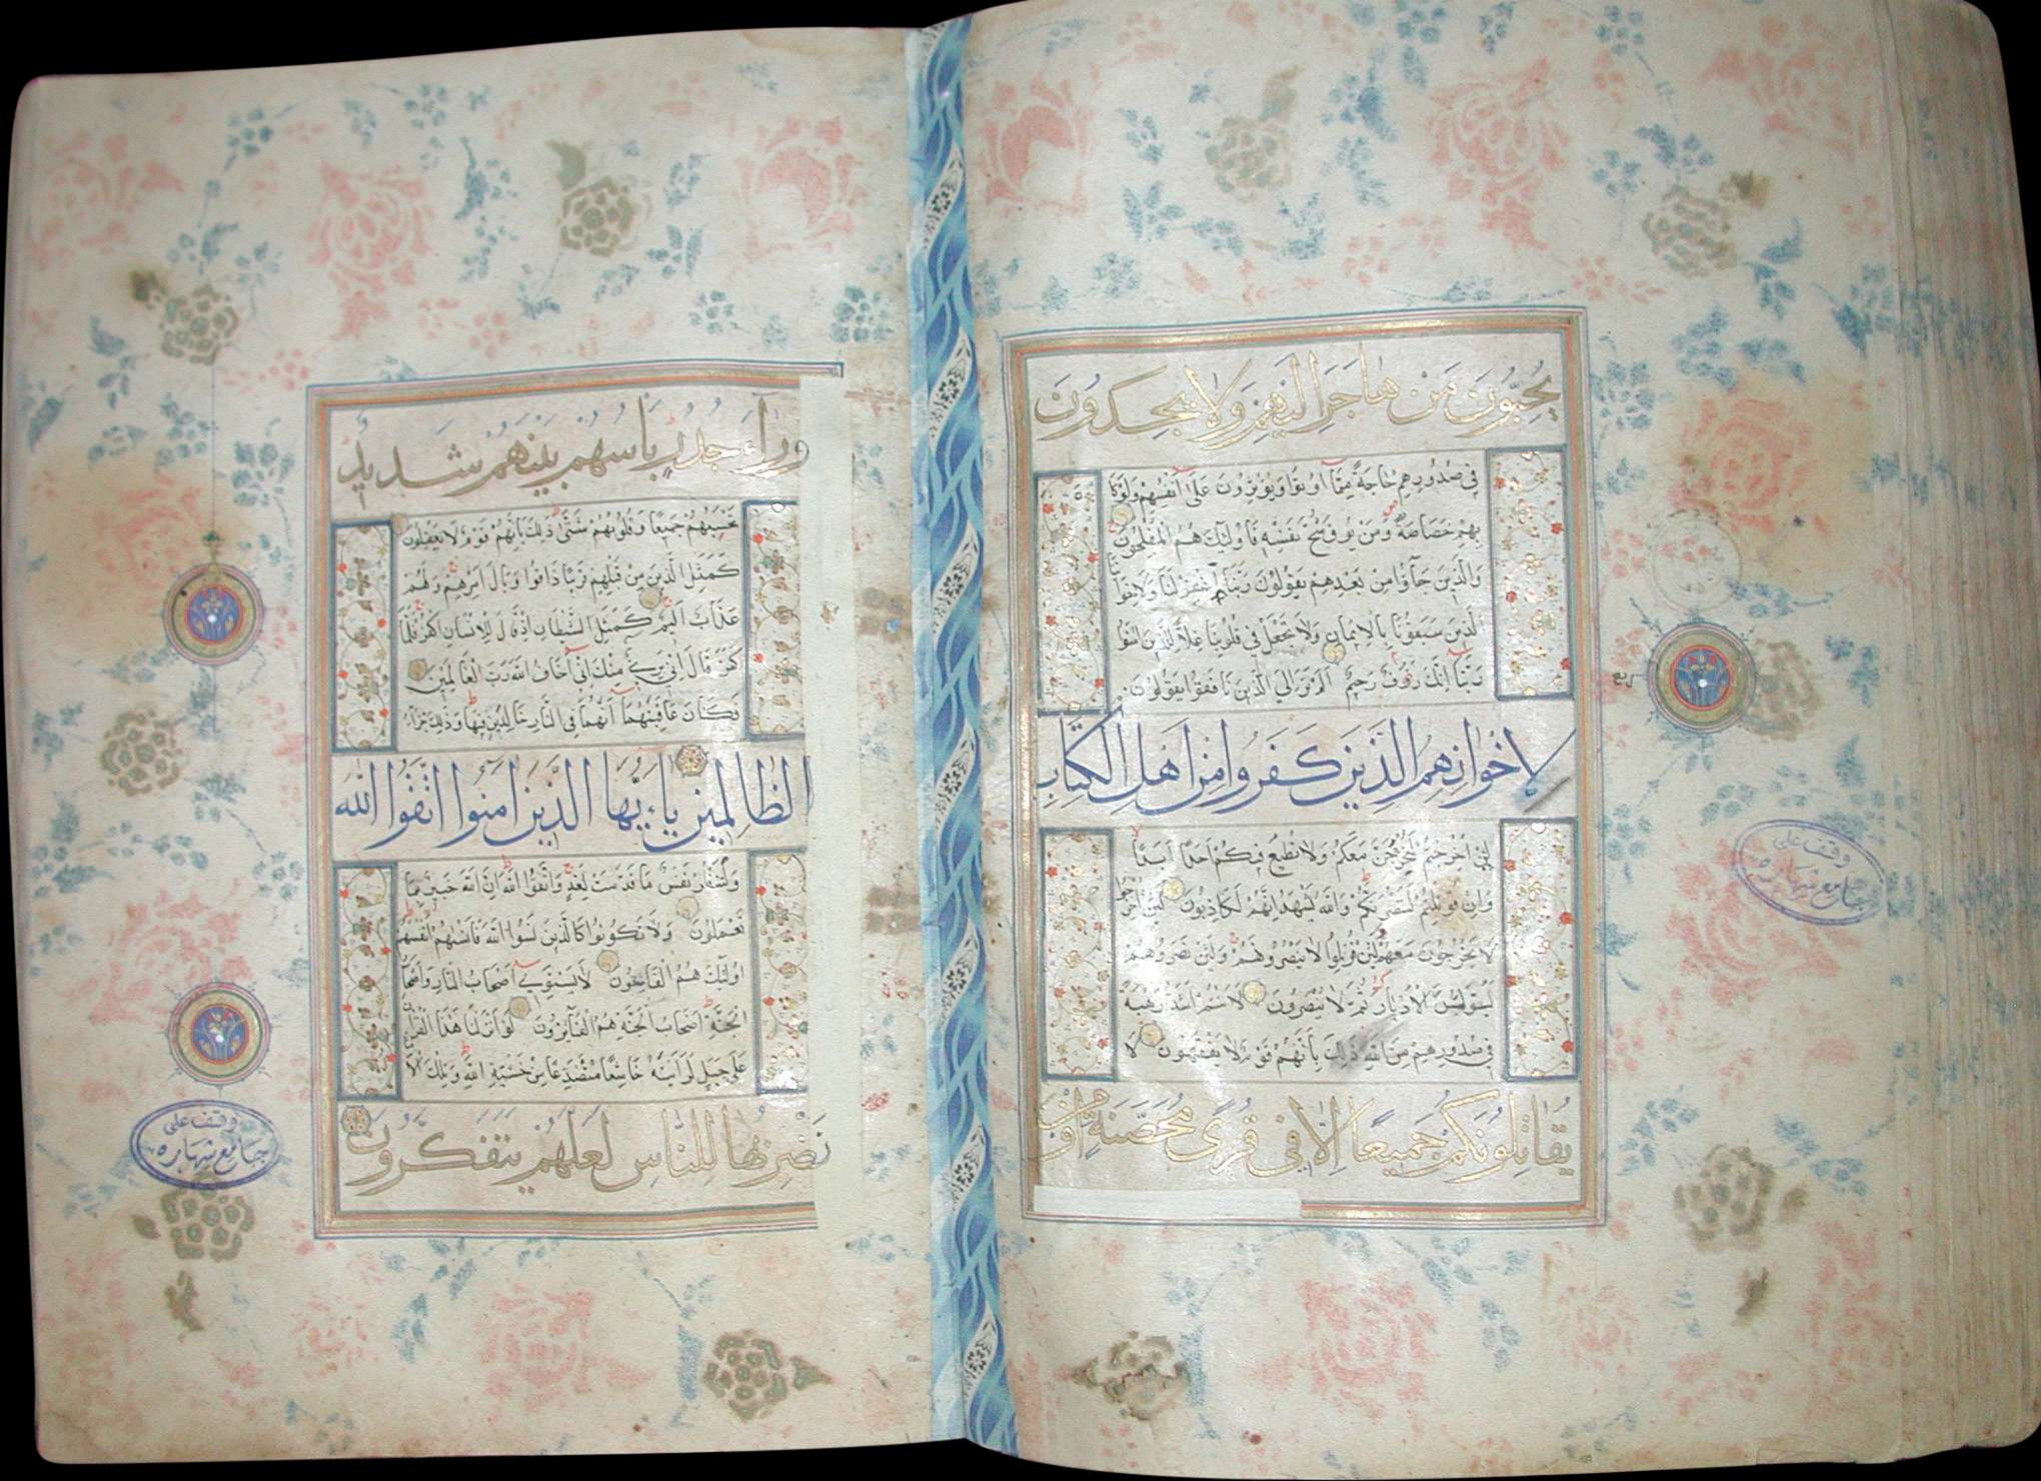 يُحِبُّونَ مَنْ هَاجَرَ إِلَيْهِمْ وَلَا يَجِدُونَ
فِي صُدُورِهِمْ حَاجَةً مِمَّا أُوتُوا وَيُؤْثِرُونَ عَلَى أَنْفُسِهِمْ وَلَوْ كَا
بِهِمْ خَصَاصَةٌ وَمَنْ يُوقَ شُحَّ نَفْسِهِ فَأُولَئِكَ هُمُ الْمُفْلِحُونَ
وَالَّذِينَ جَاؤُا مِنْ بَعْدِهِمْ يَقُولُونَ رَبَّنَا اغْفِرْ لَنَا وَلِإِخْوَا
الَّذِينَ سَبَقُونَا بِالْإِيمَانِ وَلَا تَجْعَلْ فِي قُلُوبِنَا غِلًّا لِلَّذِينَ آمَنُوا
رَبَّنَا إِنَّكَ رَؤُفٌ رَحِيمٌ أَلَمْ تَرَ إِلَى الَّذِينَ نَافَقُوا يَقُولُونَ
لِإِخْوَانِهِمُ الَّذِينَ كَفَرُوا مِنْ أَهْلِ الْكِتَابِ
لَئِنْ أُخْرِجْتُمْ لَنَخْرُجَنَّ مَعَكُمْ وَلَا نُطِيعُ فِيكُمْ أَحَدًا أَبَدًا
وَإِنْ قُوتِلْتُمْ لَنَنْصُرَنَّكُمْ وَاللَّهُ يَشْهَدُ إِنَّهُمْ لَكَاذِبُونَ لَئِنْ أُخْرِجُوا
لَا يَخْرُجُونَ مَعَهُمْ وَلَئِنْ قُوتِلُوا لَا يَنْصُرُونَهُمْ وَلَئِنْ نَصَرُوهُمْ
لَيُوَلُّنَّ الْأَدْبَارَ ثُمَّ لَا يُنْصَرُونَ لَأَنْتُمْ أَشَدُّ رَهْبَةً
فِي صُدُورِهِمْ مِنَ اللَّهِ ذَلِكَ بِأَنَّهُمْ قَوْمٌ لَا يَفْقَهُونَ لَا
يُقَاتِلُونَكُمْ جَمِيعًا إِلَّا فِي قُرًى مُحَصَّنَةٍ أَوْ مِنْ
ربع
وقف على
جامع شهاره
وَرَاءِ جُدُرٍ بَأْسُهُمْ بَيْنَهُمْ شَدِيدٌ
تَحْسَبُهُمْ جَمِيعًا وَقُلُوبُهُمْ شَتَّى ذَلِكَ بِأَنَّهُمْ قَوْمٌ لَا يَعْقِلُونَ
كَمَثَلِ الَّذِينَ مِنْ قَبْلِهِمْ قَرِيبًا ذَاقُوا وَبَالَ أَمْرِهِمْ وَلَهُمْ
عَذَابٌ أَلِيمٌ كَمَثَلِ الشَّيْطَانِ إِذْ قَالَ لِلْإِنْسَانِ اكْفُرْ فَلَمَّا
كَفَرَ قَالَ إِنِّي بَرِيءٌ مِنْكَ إِنِّي أَخَافُ اللَّهَ رَبَّ الْعَالَمِينَ
فَكَانَ عَاقِبَتَهُمَا أَنَّهُمَا فِي النَّارِ خَالِدَيْنِ فِيهَا وَذَلِكَ جَزَاءُ
الظَّالِمِينَ يَاءَيُّهَا الَّذِينَ آمَنُوا اتَّقُوا اللَّهَ
وَلْتَنْظُرْ نَفْسٌ مَا قَدَّمَتْ لِغَدٍ وَاتَّقُوا اللَّهَ إِنَّ اللَّهَ خَبِيرٌ بِمَا
تَعْمَلُونَ وَلَا تَكُونُوا كَالَّذِينَ نَسُوا اللَّهَ فَأَنْسَاهُمْ أَنْفُسَهُمْ
أُولَئِكَ هُمُ الْفَاسِقُونَ لَا يَسْتَوِي أَصْحَابُ النَّارِ وَأَصْحَابُ
الْجَنَّةِ أَصْحَابُ الْجَنَّةِ هُمُ الْفَائِزُونَ لَوْ أَنْزَلْنَا هَذَا الْقُرْآنَ
عَلَى جَبَلٍ لَرَأَيْتَهُ خَاشِعًا مُتَصَدِّعًا مِنْ خَشْيَةِ اللَّهِ وَتِلْكَ الْأَ
نَضْرِبُهَا لِلنَّاسِ لَعَلَّهُمْ يَتَفَكَّرُونَ
وقف على
جامع شهاره